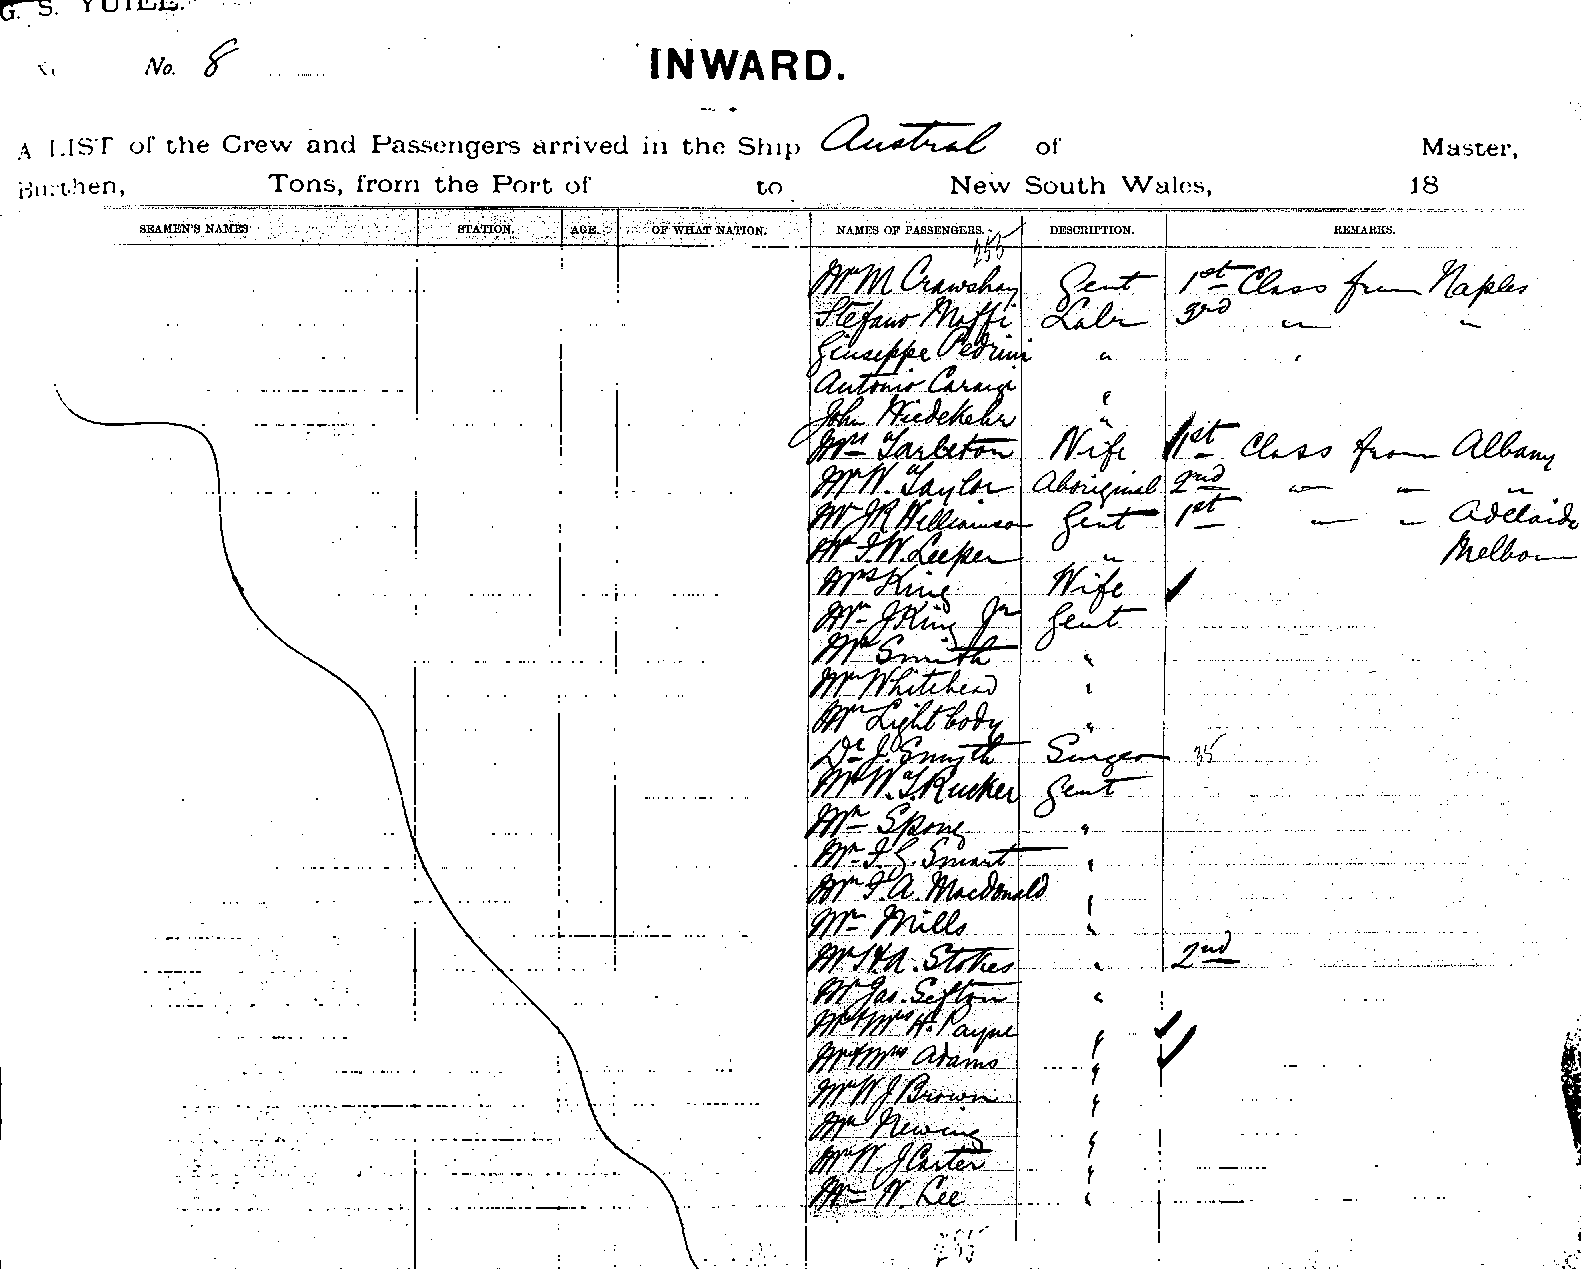 G. S. YUILL.
No. 8
INWARD.
A LIST of the Crew and Passengers arrived in the Ship Austral of Master,
Burthen, Tons, from the Port of to New South Wales, 18
SEAMEN'S NAMES STATION. AGE. OF WHAT NATION. NAMES OF PASSENGERS. DESCRIPTION. REMARKS.
253
Mr M Crawshay Gent 1st Class from Naples
Stefano Maffi Labr 3rd " "
Giuseppe Pedrini " "
Antonio "
John Niedekehr "
Mrs Tarleton Wife 1st Class from Albany
Mr W. Taylor Aboriginal 2nd " " "
Mr J R Williamson Gent 1st " " Adelaide
Mr F. W. Leeper " Melbou
Mrs King Wife
Mr J King Jr Gent
Mr Smith "
Mr Whitehead "
Mr Lightbody "
Dr J. Smyth Surgeon 35
Mr W. T. Rucker Gent
Mr Spong "
Mr F. G. Smart "
Mr F. A. Macdonald "
Mr Mills "
Mr H A. Stokes " 2nd
Mr Jas. Sefton "
Mr Mrs H. Payne "
Mr & Mrs Adams "
Mr W J Brown "
Mr Newing "
Mr W J Carter "
Mr W. Lee "